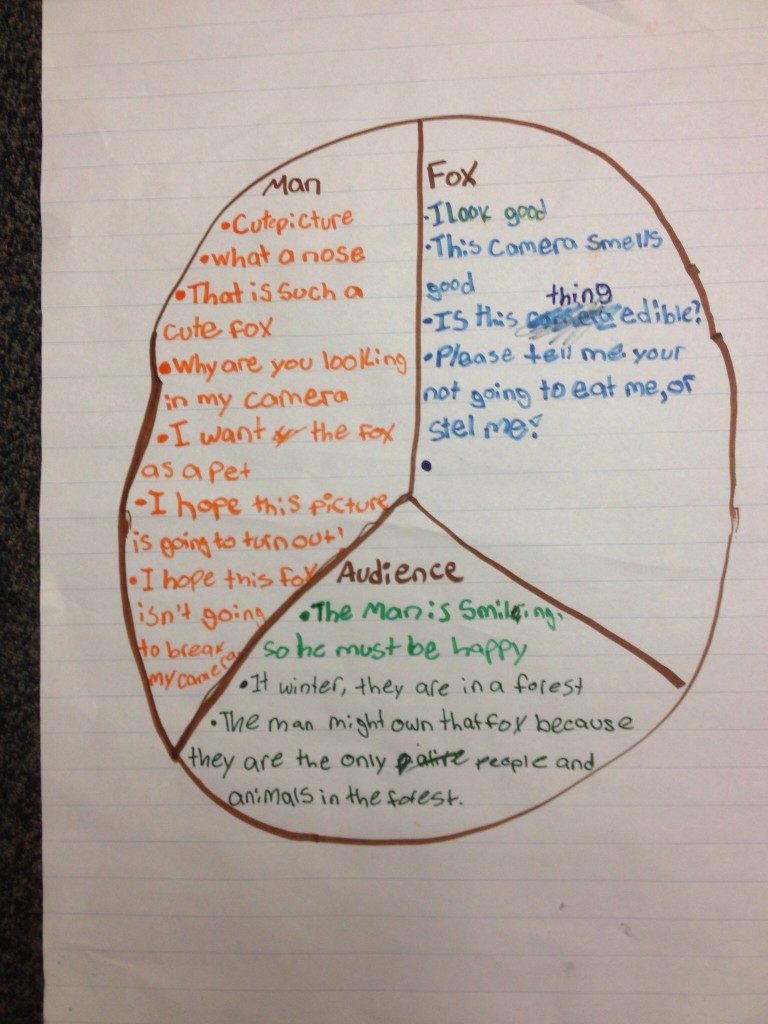 Man
•Cute picture
•what a nose
•That is such a
cute fox
•Why are you looking
in my camera
•I want the fox
as a pet
•I hope this picture
is going to turn out!
•I hope this fox
isn't going
to break
my camera
Fox
•I look good
•This camera smells
good
thing
•Is this camera edible?
•Please tell me your
not going to eat me, or
stel me?
•
Audience
•The Man is Smiling,
so he must be happy
•It winter, they are in a forest
•The man might own that fox because
they are the only people and
animals in the forest.